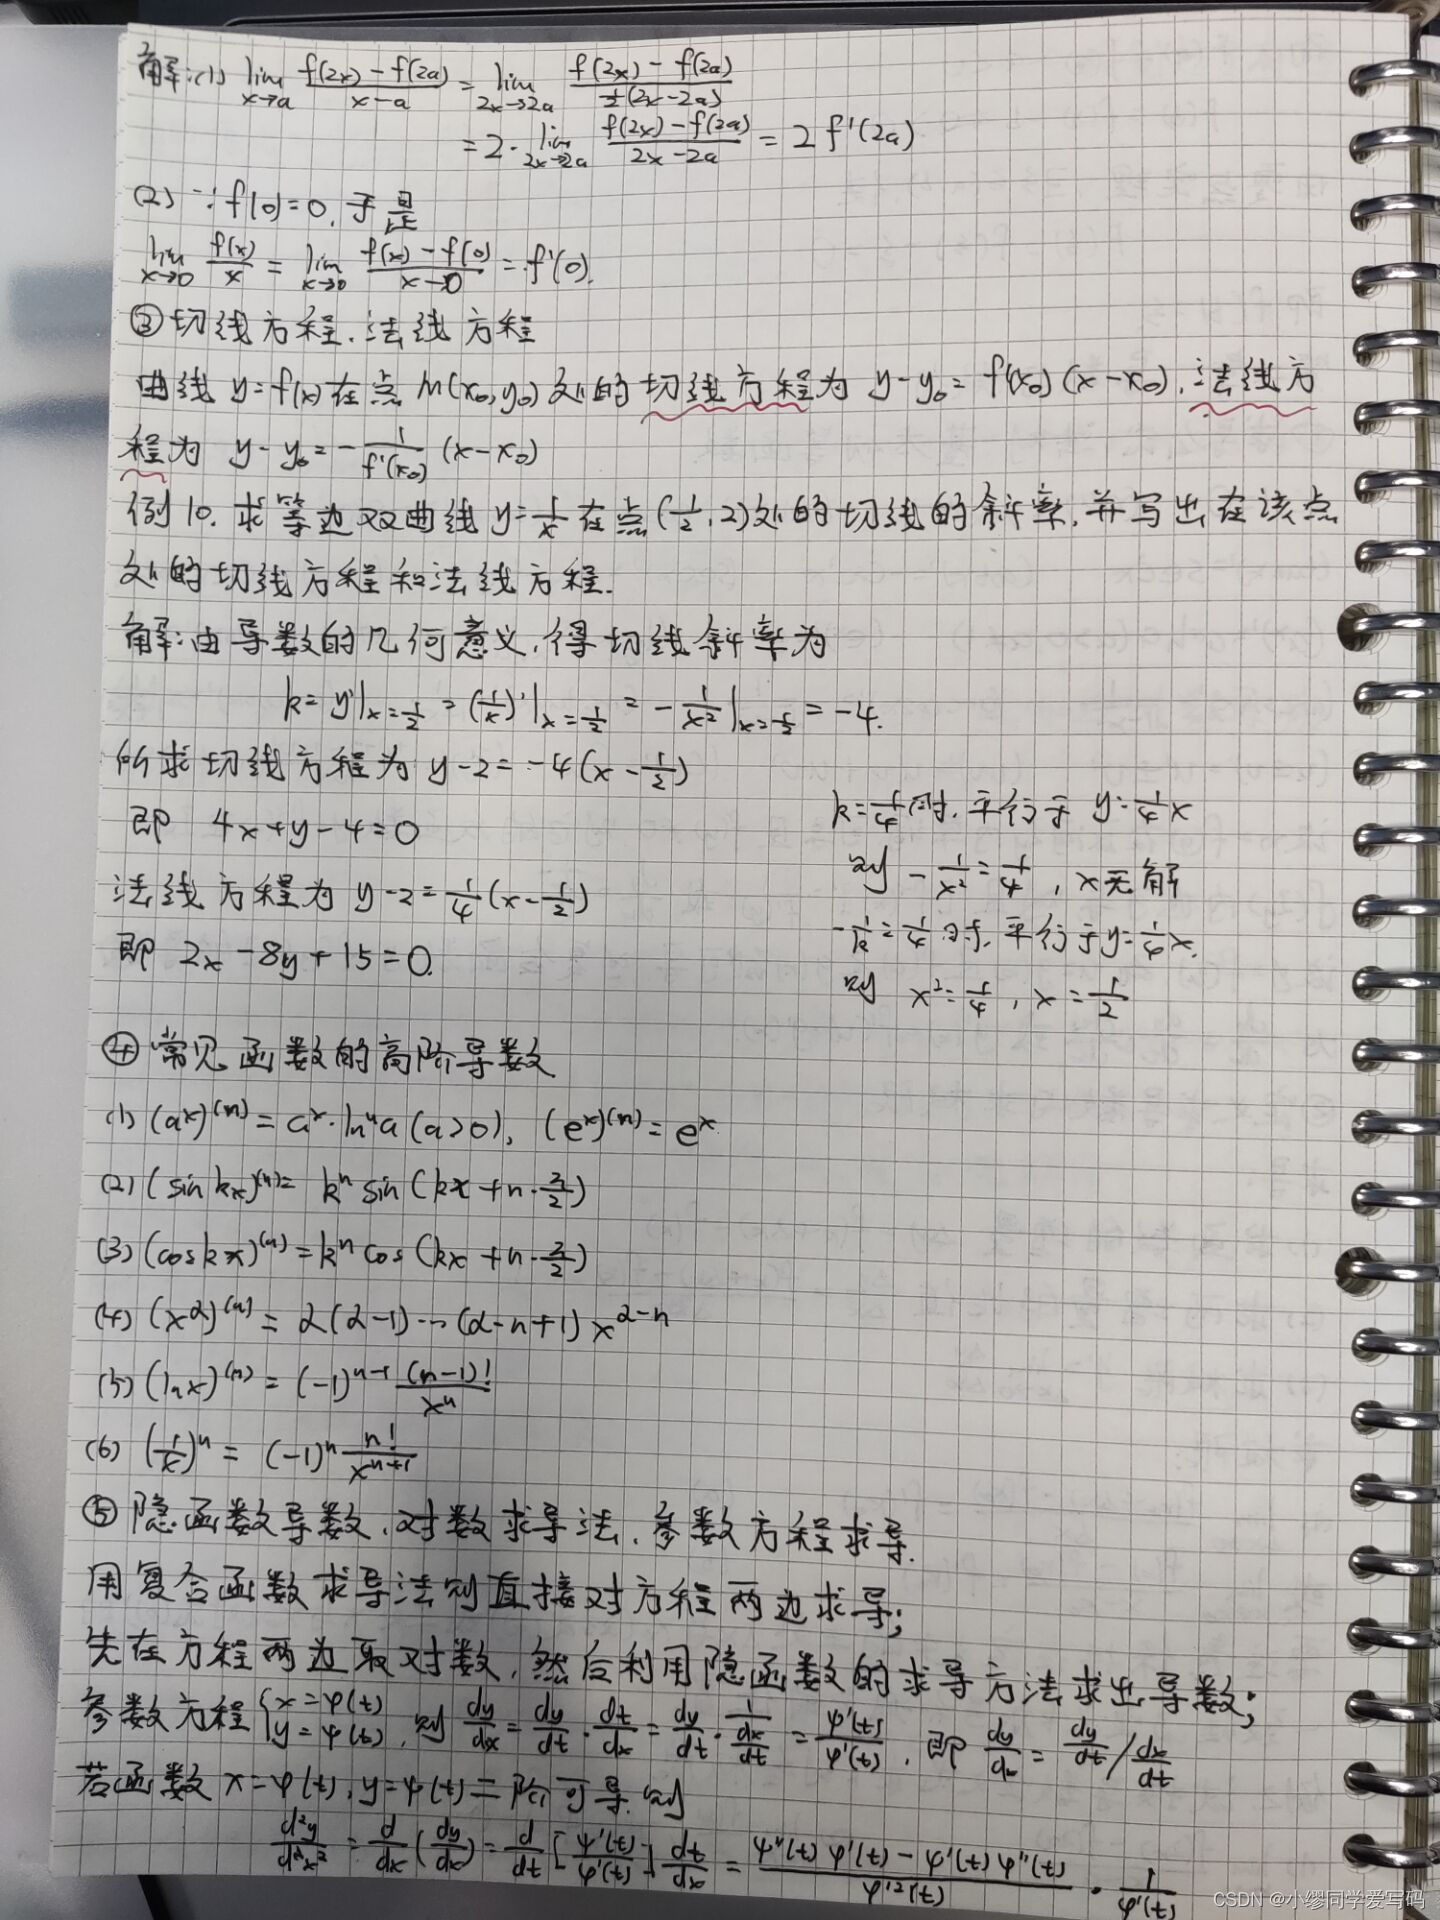 解:(1) lim_{x→a} (f(2x)-f(2a))/(x-a) = lim_{2x→2a} (f(2x)-f(2a))/(½(2x-2a))
= 2·lim_{2x→2a} (f(2x)-f(2a))/(2x-2a) = 2f'(2a)
(2) ∵f(0)=0,于是
lim_{x→0} f(x)/x = lim_{x→0} (f(x)-f(0))/(x-0) = f'(0).
③切线方程.法线方程
曲线 y=f(x)在点 M(x₀,y₀)处的切线方程为 y-y₀=f'(x₀)(x-x₀),法线方
程为 y-y₀=-1/f'(x₀) (x-x₀)
例10.求等边双曲线y=1/x在点(1/2,2)处的切线的斜率,并写出在该点
处的切线方程和法线方程.
解:由导数的几何意义,得切线斜率为
k=y'|_{x=1/2} = (1/x)'|_{x=1/2} = -1/x²|_{x=1/2} = -4.
所求切线方程为 y-2=-4(x-1/2)
即 4x+y-4=0
法线方程为 y-2=1/4(x-1/2)
即 2x-8y+15=0.
k=1/4时,平行于 y=1/4x
则 -1/x²=1/4,x无解
-1/k=1/4时,平行于y=1/4x.
则 x²=1/4,x=1/2
④常见函数的高阶导数
(1) (aˣ)⁽ⁿ⁾=aˣ·lnⁿa(a>0), (eˣ)⁽ⁿ⁾=eˣ
(2) (sin kx)⁽ⁿ⁾= kⁿ sin(kx+n·π/2)
(3) (cos kx)⁽ⁿ⁾=kⁿ cos(kx+n·π/2)
(4) (x^α)⁽ⁿ⁾ = α(α-1)…(α-n+1)x^{α-n}
(5) (lnx)⁽ⁿ⁾ = (-1)ⁿ⁻¹ (n-1)!/xⁿ
(6) (1/x)ⁿ = (-1)ⁿ n!/xⁿ⁺¹
⑤ 隐函数导数,对数求导法,参数方程求导.
用复合函数求导法则直接对方程两边求导;
先在方程两边取对数,然后利用隐函数的求导方法求出导数;
参数方程{x=φ(t) y=ψ(t), 则 dy/dx = dy/dt · dt/dx = dy/dt · 1/(dx/dt) = ψ'(t)/φ'(t), 即 dy/dx = dy/dt / dx/dt
若函数 x=φ(t),y=ψ(t)二阶可导.则
d²y/d²x² = d/dx(dy/dx) = d/dt[ψ'(t)/φ'(t)] dt/dx = (ψ''(t)φ'(t)-ψ'(t)φ''(t))/φ'²(t) · 1/φ'(t)
CSDN @小缪同学爱写码